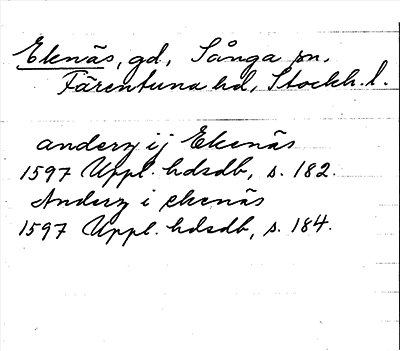 Ekenäs, gd, Sånga sn,
Färentuna hd, Stockh. l.
anderz ij Ekenäs
1597 Uppl. hdsdb, s. 182.
Anderz i ekenäs
1597 Uppl. hdsdb, s. 184.